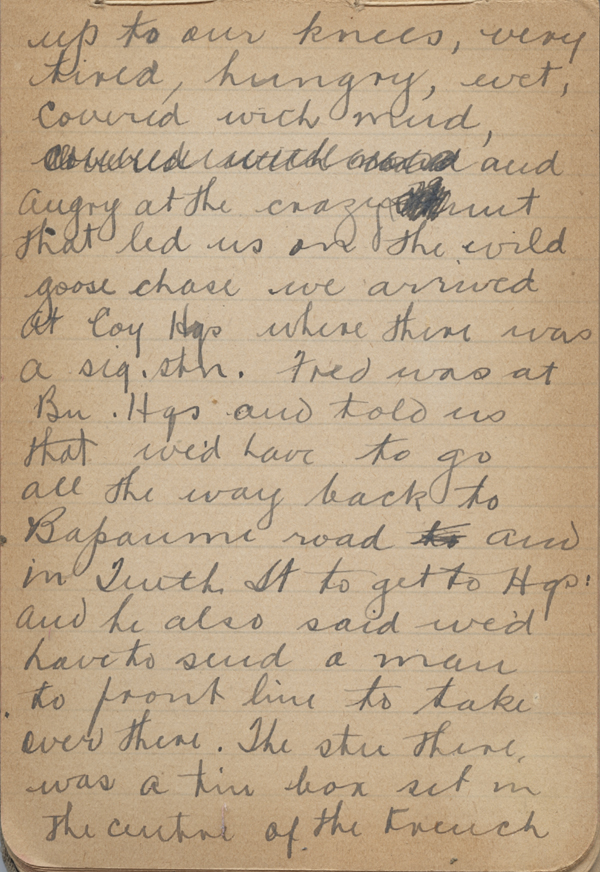 up to our knees, very
tired, hungry, wet,
covered with mud,
covered with mud and
angry at the crazy
that led us on the wild
goose chase we arrived
at Coy Hqs where there was
a sig. stn. Fred was at
Bn. Hqs and told us
that we'd have to go
all the way back to
Bapaume road to and
in St to get to Hqs:
and he also said we'd
have to send a man
to front line to take
over there. The stn there,
was a tin box set in
the centre of the trench